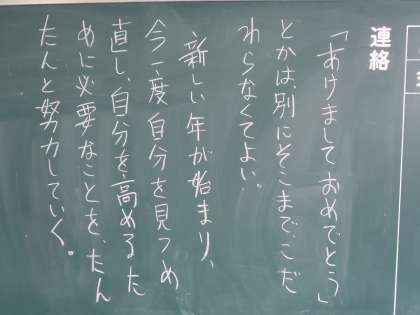 連絡
「あけましておめでとう」
とかは、別にそこまでこだ
わらなくてよい。
新しい年が始まり、
今一度自分を見つめ
直し、自分を高めるた
めに必要なことを、たん
たんと努力していく。